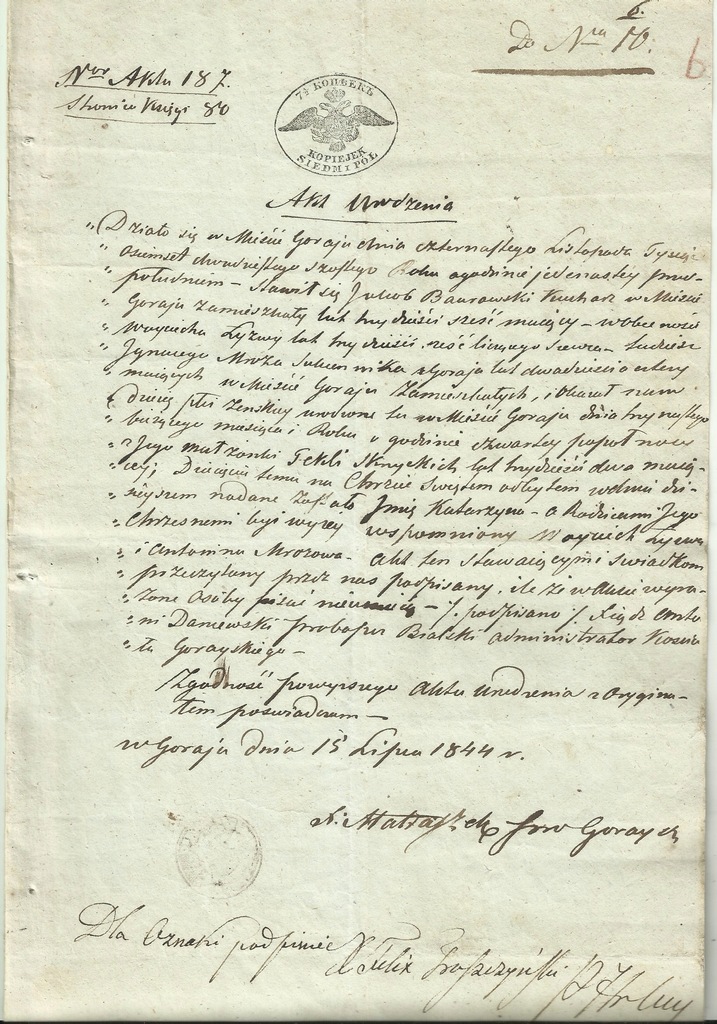 6.
Do Nra 10.
6
Nor Aktu 187.
Stronica Księgi 80
7½ КОПѢЕКЪ
KOPIEJEK
SIEDM I PÓŁ
Akt Urodzenia
„ Działo się w Mieście Goraju dnia czternastego Listopada Tysiąc
„ osimset dwudziestego szóstego Roku o godzinie jedenastey przed
„ południem – Stawił się Jakob Baurowski Kucharz w Mieście
„ Goraju zamieszkały lat trzydzieści sześć maiący – w obecności
„ Woyciecha Łyzwy lat trzydzieści sześć liczącego Szewca – tudzież
„ Jgnacego Mroza Sukiennika z Goraja lat dwadzieścia cztery
„ maiących w Mieście Goraju Zamieszkałych, i Okazał nam
„ dziecię płci Zenskiey urodzone tu w Mieście Goraju dnia trzynastego
„ bieżącego miesiąca i Roku o godzinie czwartey popołnocy
„ z Jego małżonki Tekli Skryckich lat trzydzieści dwa maią-
„ cey; Dziecięciu temu na Chrzcie Swiętem odbytem w dniu dzi-
„ sieyszem nadane Zostało Jmię Katarzyna – a Rodzicami Jego
„ Chrzesnemi byli wyżey wspomniony Woyciech Łyzwa
„ i Antonina Mrozowa – akt ten Stawaiącymi swiadkom
„ przeczytany przez nas podpisany, ile że w akcie wyra-
„ zone Osoby pisać nieumieią – /. podpisano /. Xiądz Anto
„ ni Daniewski proboszcz Bialski administrator Koscio
„ ła Gorayskiego –
Zgodność powyższego Aktu Urodzenia z Orygina-
łem poswiadczam –
w Goraju dnia 15 Lipca 1844 r.
Dla Oznaki podpisuie
X Felix